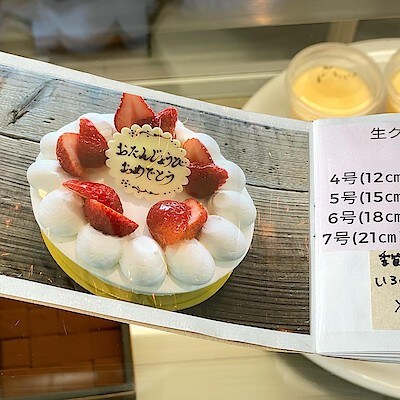 おたんじょうび
おめでとう
生ク
4号(12cm
5号(15cm
6号(18cm
7号(21cm)
いろ